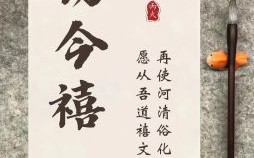 今禧
再使河清俗化
愿从吾道禧文